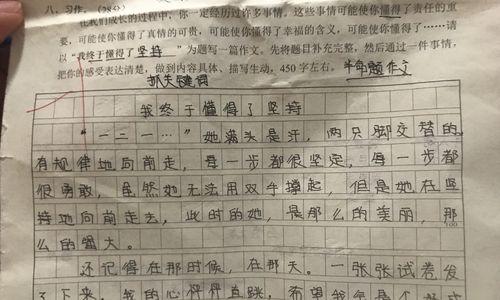 八、习作。(28分)
在我们成长的过程中，你一定经历过许多事情。这些事情可能使你懂得了责任的重
要，可能使你懂得了真情的可贵，可能使你懂得了幸福的含义，可能使你懂得了……请
以“我终于懂得了坚持”为题写一篇作文。先将题目补充完整，然后通过一件事情，
把你的感受表达清楚，做到内容具体、描写生动，450字左右。半命题作文
抓关键词
我终于懂得了坚持
“一二一…”她满头是汗，两只脚交替的
有规律地向前走，每一步都很坚定，每一步都
很勇敢，虽然她无法用双手撑起，但是她在坚
持地向前走去，此时的她，是那么的美丽，那
么的强大。
100
还记得在那时候，在那天。一张张试卷发
了下来，我的心怦怦直跳，希望我